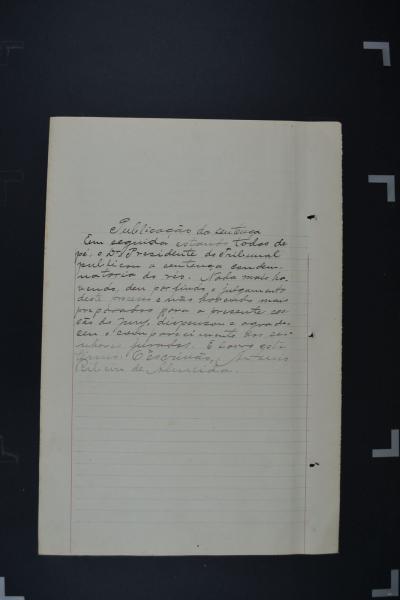 Publicação da sentença
Em seguida estando todos de
pé, o Dr Presidente do Tribunal
publicou a sentença conden-
natoria do réo. Nada mais ha-
vendo, deu por findo o julgamento
deste processo e não havendo mais
preparados para a presente ses-
são do Jury, dispensou e agrade-
ceu o comparecimento dos se-
nhores jurados. E lavro este
termo. O escrivão, Antonio
Ribeiro de Almeida.